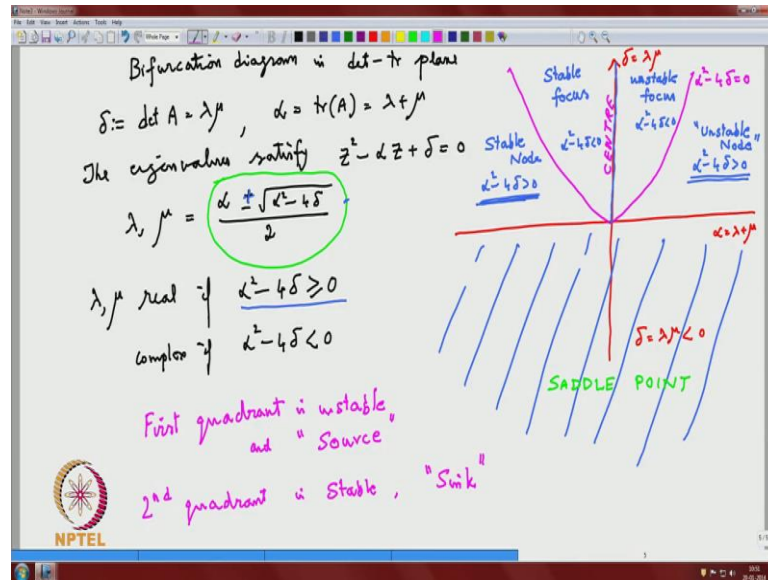 File Edit View Insert Actions Tools Help
Bifurcation diagram in det-tr plane
δ:= det A = λμ , α = tr(A) = λ+μ
The eigenvalues satisfy z² - αz + δ = 0
λ, μ = α ± √α² - 4δ / 2
λ, μ real if α² - 4δ ≥ 0
complex if α² - 4δ < 0
First quadrant is unstable
and "Source"
2nd quadrant is Stable, "Sink"
NPTEL
δ = λμ
Stable
focus
α²-4δ<0
CENTRE
unstable
focus
α²-4δ<0
α²-4δ=0
Stable
Node
α²-4δ>0
"Unstable
Node"
α²-4δ>0
α = λ+μ
δ = λμ < 0
SADDLE POINT
5